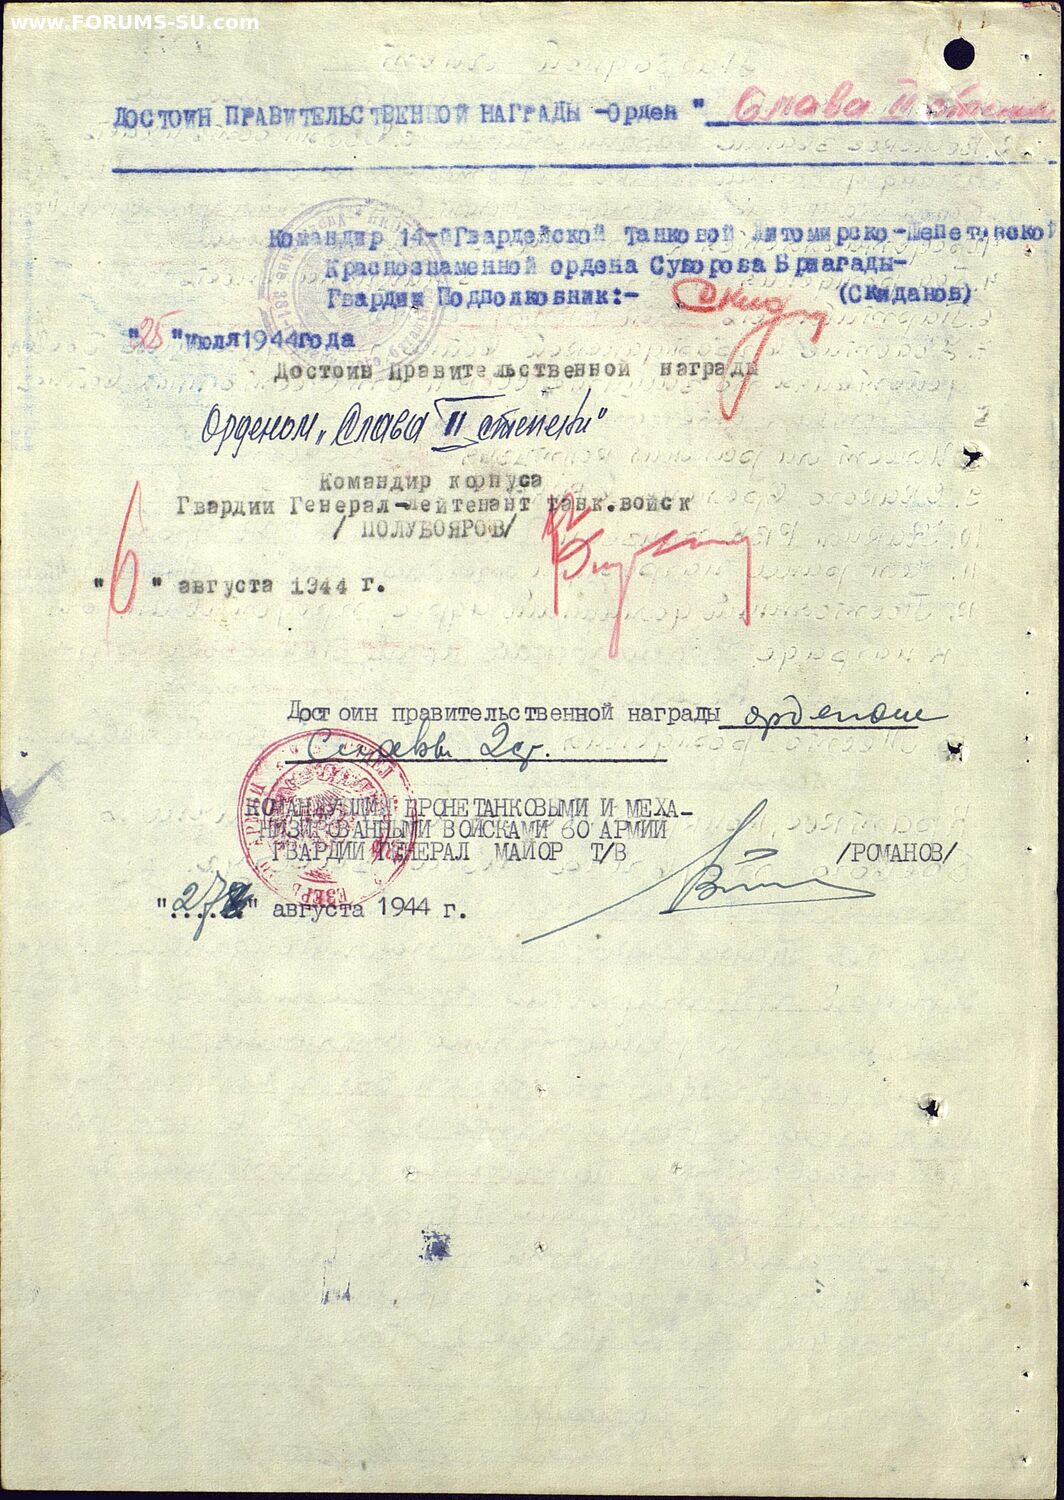 www.FORUMS-SU.com
ДОСТОИН ПРАВИТЕЛЬСТВЕННОЙ НАГРАДЫ -Орден "Слава II степени
Командир 14-й Гвардейской Танковой Житомирско-Шепетовской
Краснознаменной ордена Суворова Бригады-
Гвардии Подполковник:- (Скиданов)
"25" июля 1944 года
Достоин Правительственной награды
Орденом „Слава II степени"
Командир корпуса
Гвардии Генерал-лейтенант танк.войск
/ ПОЛУБОЯРОВ/
"6" августа 1944 г.
Достоин правительственной награды орденом
Славы 2 ст.
КОМАНДУЮЩИЙ БРОНЕТАНКОВЫМИ И МЕХА-
НИЗИРОВАННЫМИ ВОЙСКАМИ 60 АРМИИ
ГВАРДИИ ГЕНЕРАЛ МАЙОР Т/В /РОМАНОВ/
августа 1944 г.